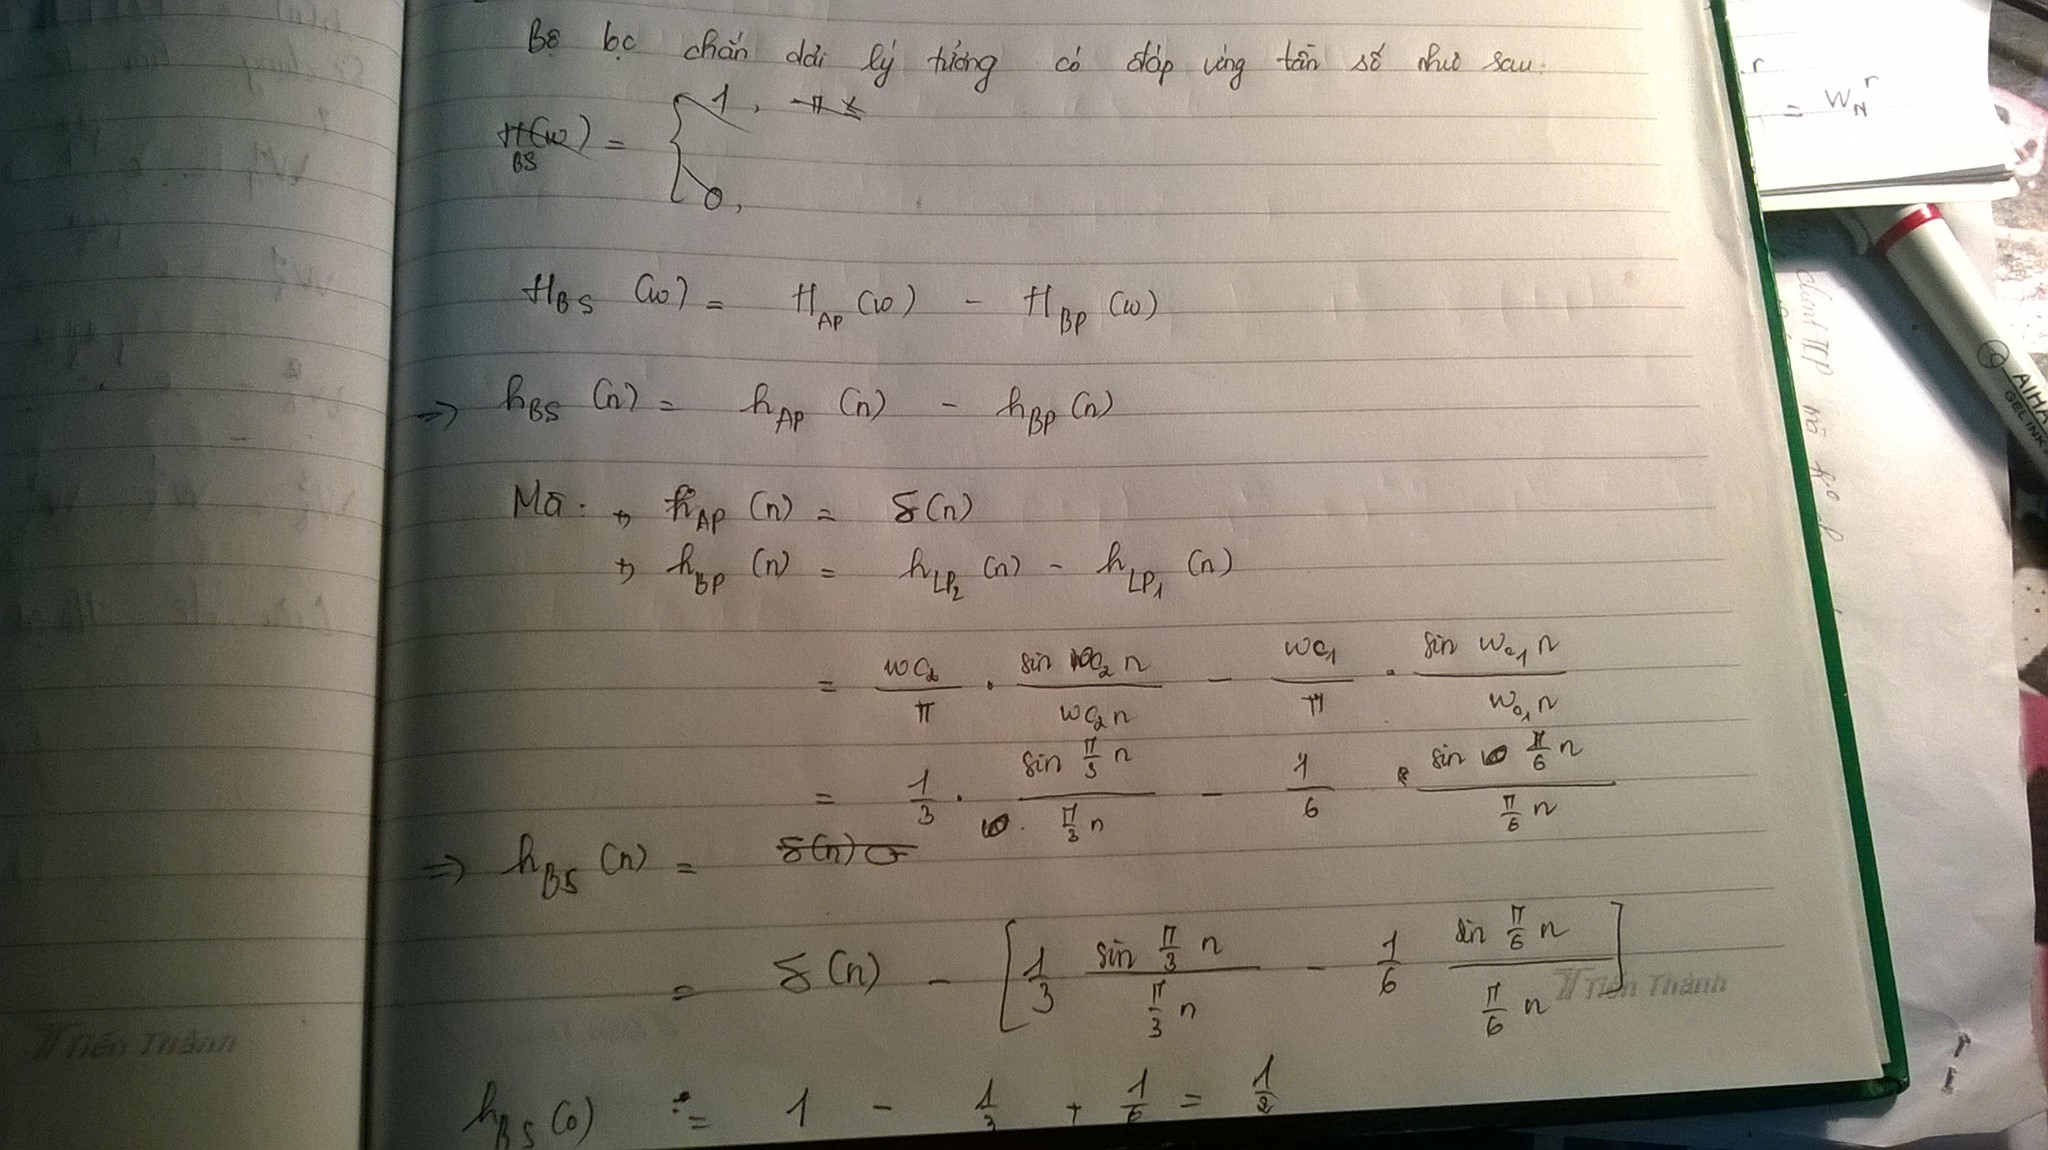 Bộ lọc chắn dải lý tưởng có đáp ứng tần số như sau:
H(ω) = { 1, -π ≤
BS
0,
H_BS (ω) = H_AP (ω) - H_BP (ω)
=> h_BS (n) = h_AP (n) - h_BP (n)
Mà: +, h_AP (n) = δ(n)
+, h_BP (n) = h_LP₂ (n) - h_LP₁ (n)
= ωc₂/π . sin ωc₂ n / ωc₂ n - ωc₁/π . sin ωc₁ n / ωc₁ n
= 1/3 . sin π/3 n / π/3 n - 1/6 . sin π/6 n / π/6 n
=> h_BS (n) = δ(n)
= δ(n) - [ 1/3 sin π/3 n / π/3 n - 1/6 sin π/6 n / π/6 n ]
h_BS (0) = 1 - 1/3 + 1/6 = 1/2
Tiến Thành
Tiến Thành
= W_N^r
AIHA
GEL INK